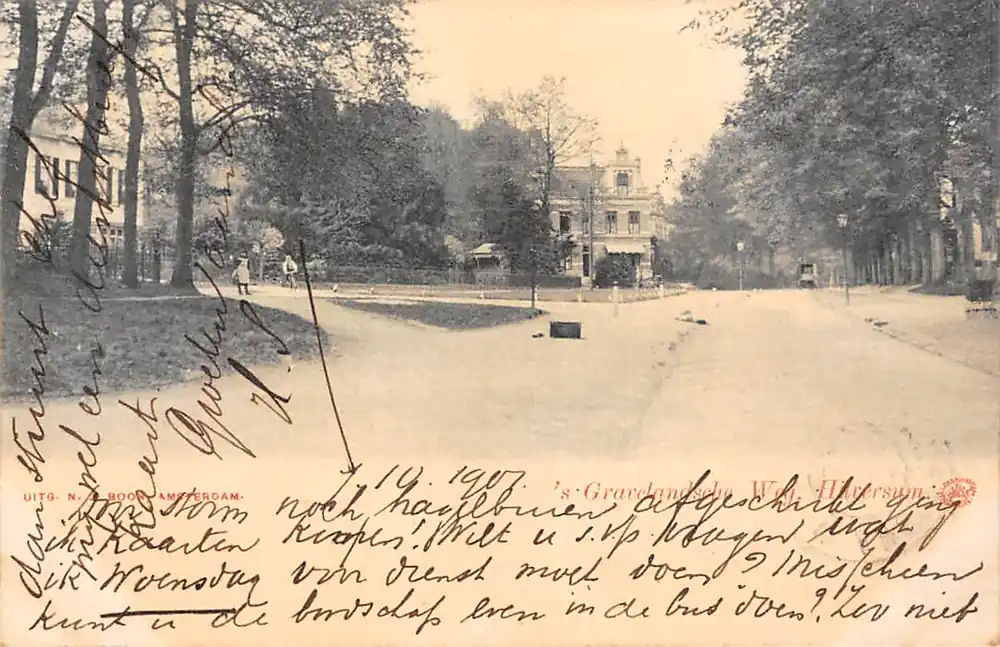 7 10. 1901.
's Gravelandsche Weg, Hilversum.
UITG. N. J. BOON, AMSTERDAM.
Door storm noch hagelbuien afgeschrikt ging
ik Kaarten Koopen! Wilt u s.v.p. vragen wat
ik Woensdag voor dienst moet doen? Misschien
kunt u de boodschap even in de bus doen? Zoo niet
dan stuurt
mij wel een
kaart.
Groeten van